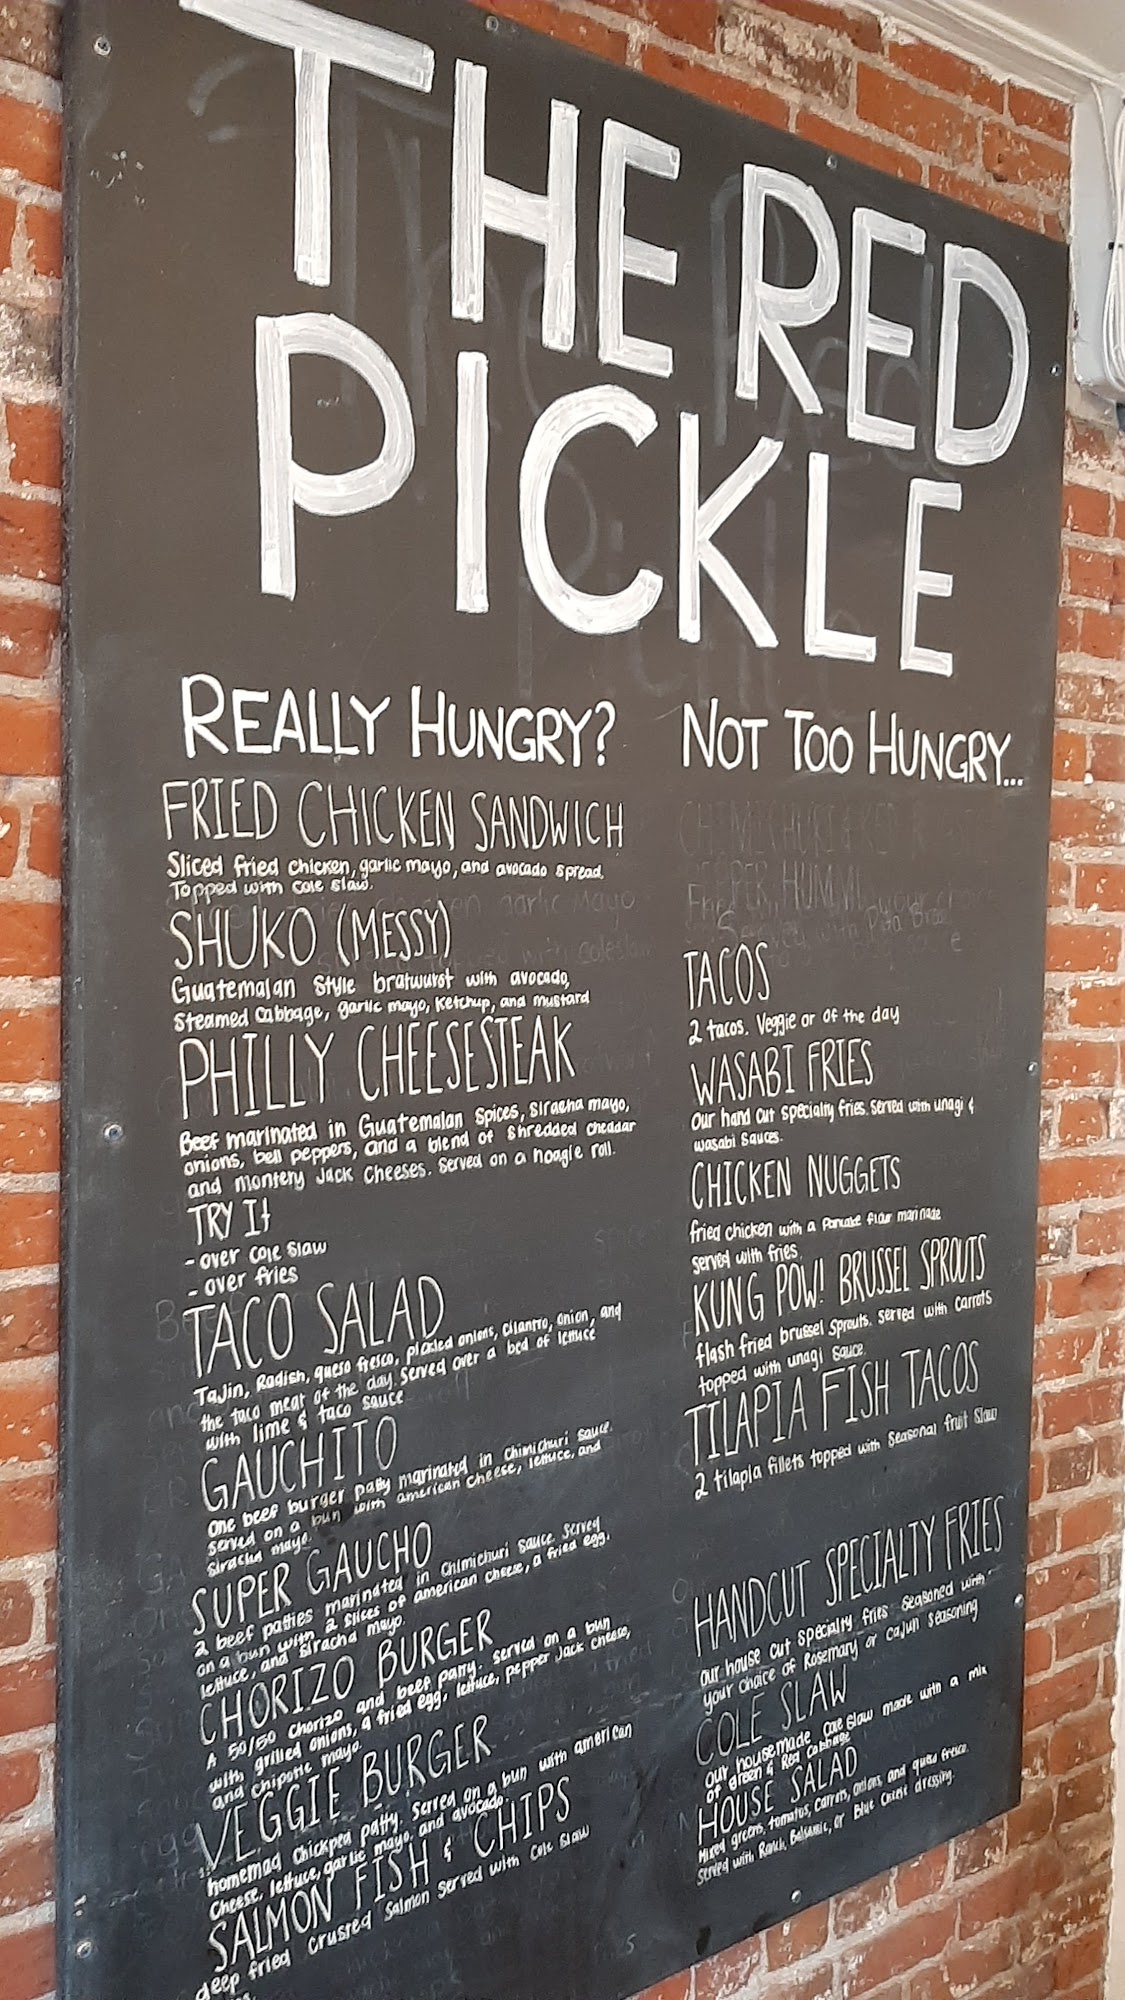 THE RED
PICKLE
REALLY HUNGRY?
FRIED CHICKEN SANDWICH
Sliced fried chicken, garlic mayo, and avocado spread.
Topped with cole slaw.
SHUKO (MESSY)
Guatemalan Style bratwurst with avocado,
Steamed Cabbage, garlic mayo, Ketchup, and mustard
PHILLY CHEESESTEAK
Beef marinated in Guatemalan Spices, siracha mayo,
onions, bell peppers, and a blend of shredded cheddar
and montery Jack Cheeses. Served on a hoagie roll.
TRY It
- over cole slaw
- over fries
TACO SALAD
Tajin, Radish, queso fresco, pickled onions, cilantro, onion, and
the taco meat of the day. Served over a bed of lettuce
with lime & taco sauce
GAUCHITO
One beef burger patty marinated in chimichuri sauce.
served on a bun with american cheese, lettuce, and
siracha mayo.
SUPER GAUCHO
2 beef patties marinated in Chimichuri Sauce. Served
on a bun with 2 slices of american cheese, a fried egg,
lettuce, and siracha mayo.
CHORIZO BURGER
A 50/50 chorizo and beef patty. served on a bun
with grilled onions, a fried egg, lettuce, pepper Jack cheese,
and chipotle mayo.
VEGGIE BURGER
homemad Chickpea patty. Served on a bun with american
Cheese, lettuce, garlic mayo, and avocado.
SALMON FISH & CHIPS
deep fried crusted Salmon served with Cole Slaw
NOT TOO HUNGRY...
CHIMICHURI & RED
PEPPER HUMMU
TACOS
2 tacos. Veggie or of the day
WASABI FRIES
Our hand cut specialty fries. Served with unagi &
wasabi sauces.
CHICKEN NUGGETS
fried chicken with a pancake flour marinade
served with fries.
KUNG POW! BRUSSEL SPROUTS
flash fried brussel sprouts. served with carrots
topped with unagi sauce.
TILAPIA FISH TACOS
2 tilapia fillets topped with Seasonal fruit slaw
HANDCUT SPECIALTY FRIES
our house cut specialty fries seasoned with
your choice of Rosemary or Cajun Seasoning
COLE SLAW
our housemade cole slaw made with a mix
of green & Red Cabbage
HOUSE SALAD
Mixed greens, tomatos, carrots, onions, and queso fresco.
Served with Ranch, Balsamic, or Blue Cheese dressing.